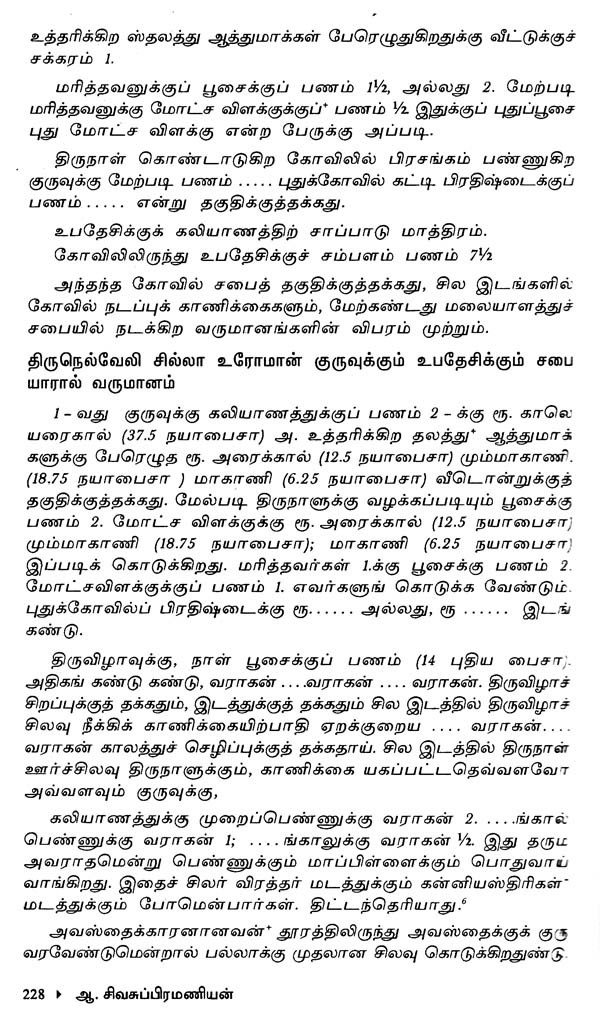 உத்தரிக்கிற ஸ்தலத்து ஆத்துமாக்கள் பேரெழுதுகிறதுக்கு வீட்டுக்குச்
சக்கரம் 1.
மரித்தவனுக்குப் பூசைக்குப் பணம் 1½, அல்லது 2. மேற்படி
மரித்தவனுக்கு மோட்ச விளக்குக்குப்+ பணம் ½ இதுக்குப் புதுப்பூசை
புது மோட்ச விளக்கு என்ற பேருக்கு அப்படி.
திருநாள் கொண்டாடுகிற கோவிலில் பிரசங்கம் பண்ணுகிற
குருவுக்கு மேற்படி பணம் ..... புதுக்கோவில் கட்டி பிரதிஷ்டைக்குப்
பணம் ..... என்று தகுதிக்குத்தக்கது.
உபதேசிக்குக் கலியாணத்திற் சாப்பாடு மாத்திரம்.
கோவிலிலிருந்து உபதேசிக்குச் சம்பளம் பணம் 7½
அந்தந்த கோவில் சபைத் தகுதிக்குத்தக்கது, சில இடங்களில்
கோவில் நடப்புக் காணிக்கைகளும், மேற்கண்டது மலையாளத்துச்
சபையில் நடக்கிற வருமானங்களின் விபரம் முற்றும்.
திருநெல்வேலி சில்லா உரோமான் குருவுக்கும் உபதேசிக்கும் சபை
யாரால் வருமானம்
1 - வது குருவுக்கு கலியாணத்துக்குப் பணம் 2 - க்கு ரூ. காலெ
யரைகால் (37.5 நயாபைசா) அ. உத்தரிக்கிற தலத்து+ ஆத்துமாக்
களுக்கு பேரெழுத ரூ. அரைக்கால் (12.5 நயாபைசா) மும்மாகாணி.
(18.75 நயாபைசா ) மாகாணி (6.25 நயாபைசா) வீடொன்றுக்குத்
தகுதிக்குத்தக்கது. மேல்படி திருநாளுக்கு வழக்கப்படியும் பூசைக்கு
பணம் 2. மோட்ச விளக்குக்கு ரூ. அரைக்கால் (12.5 நயாபைசா)
மும்மாகாணி (18.75 நயாபைசா); மாகாணி (6.25 நயாபைசா)
இப்படிக் கொடுக்கிறது. மரித்தவர்கள் 1.க்கு பூசைக்கு பணம் 2.
மோட்சவிளக்குக்குப் பணம் 1. எவர்களுங் கொடுக்க வேண்டும்.
புதுக்கோவில்ப் பிரதிஷ்டைக்கு ரூ...... அல்லது, ரூ ...... இடங்
கண்டு.
திருவிழாவுக்கு, நாள் பூசைக்குப் பணம் (14 புதிய பைசா).
அதிகங் கண்டு கண்டு, வராகன் ....வராகன் .... வராகன். திருவிழாச்
சிறப்புக்குத் தக்கதும், இடத்துக்குத் தக்கதும் சில இடத்தில் திருவிழாச்
சிலவு நீக்கிக் காணிக்கையிற்பாதி ஏறக்குறைய .... வராகன்....
வராகன் காலத்துச் செழிப்புக்குத் தக்கதாய். சில இடத்தில் திருநாள்
ஊர்ச்சிலவு திருநாளுக்கும், காணிக்கை யகப்பட்டதெவ்வளவோ
அவ்வளவும் குருவுக்கு,
கலியாணத்துக்கு முறைப்பெண்ணுக்கு வராகன் 2. ....ங்கால்
பெண்ணுக்கு வராகன் 1; ....ங்காலுக்கு வராகன் ½. இது தரும
அவராதமென்று பெண்ணுக்கும் மாப்பிள்ளைக்கும் பொதுவாய்
வாங்கிறது. இதைச் சிலர் விரத்தர் மடத்துக்கும் கன்னியஸ்திரிகள்
மடத்துக்கும் போமென்பார்கள். திட்டந்தெரியாது.6
அவஸ்தைக்காரனானவன்+ தூரத்திலிருந்து அவஸ்தைக்குக் குரு
வரவேண்டுமென்றால் பல்லாக்கு முதலான சிலவு கொடுக்கிறதுண்டு.
228 ▸ ஆ. சிவசுப்பிரமணியன்